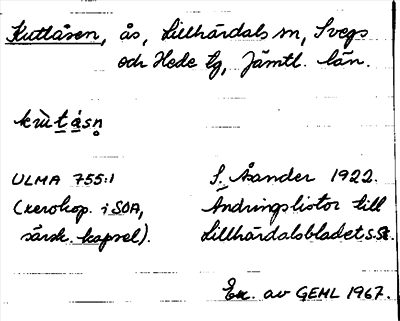 Kuttåsen, ås, Lillhärdals sn, Svegs
och Hede tg, Jämtl. län.
kùtåsn̥
ULMA 755:1 S. Åsander 1922.
(xerokop. i SOA, Ändringslistor till
särsk. kapsel). Lillhärdalsbladet s.
Ex. av GEHL 1967.